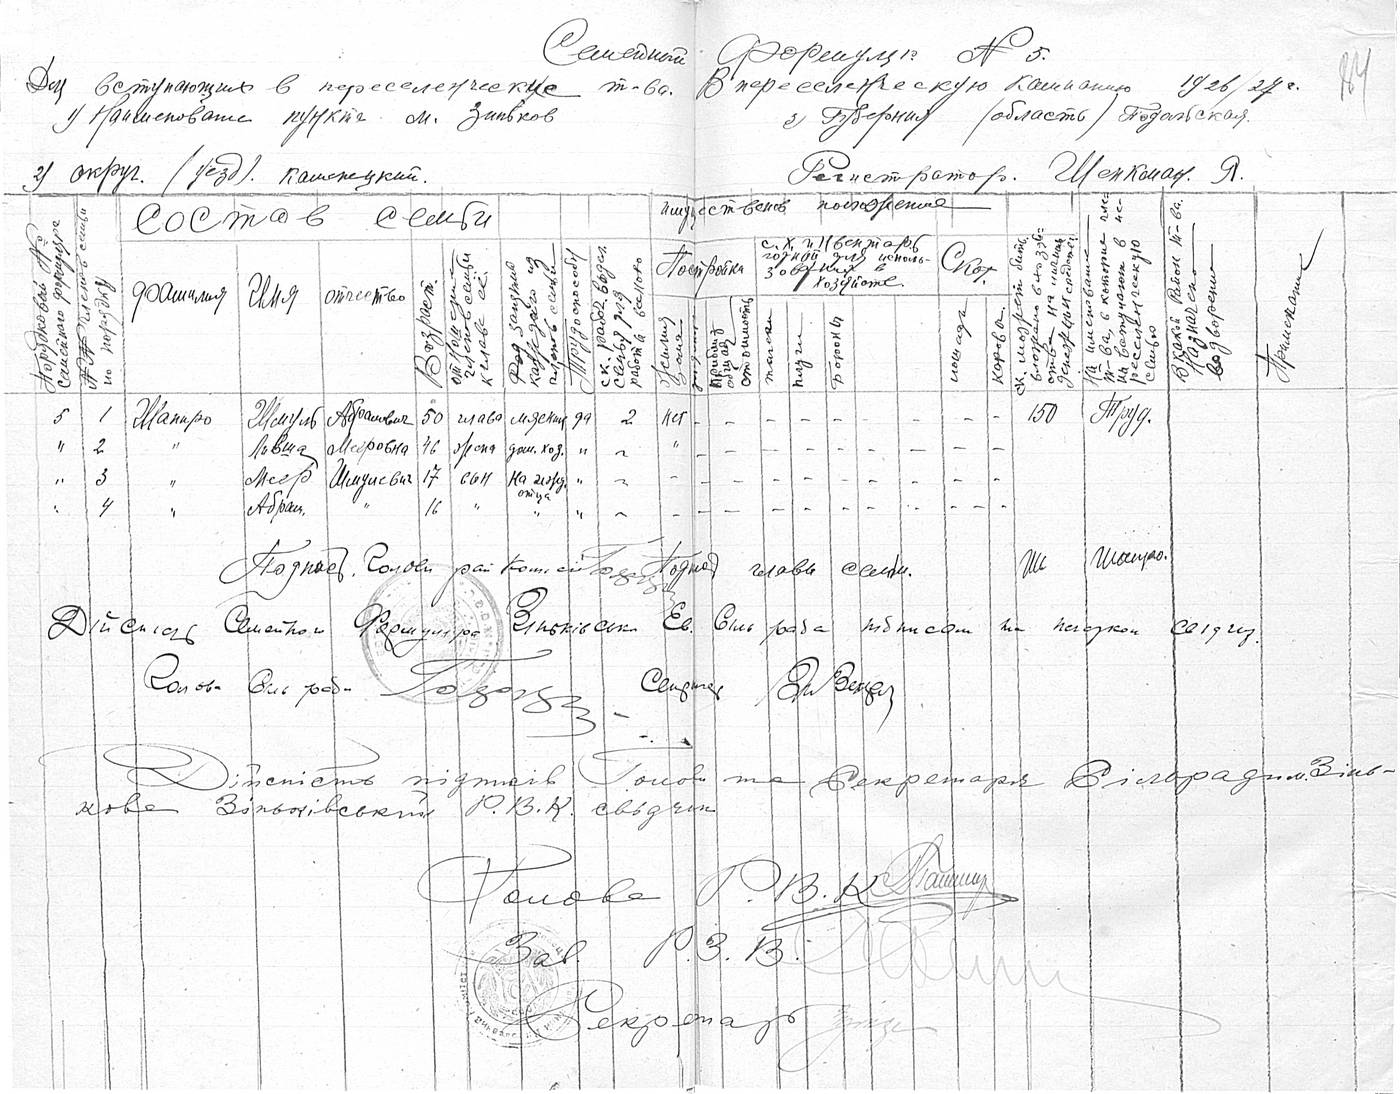 Семейный Формуляр № 5.
84
Для вступающих в переселенческие т-ва. В переселенческую кампанию 1926/27 г.
1) Наименование пункта м. Зиньков 2) Губерния (область) Подольская.
2) округ. (уезд). каменецкий. Регистратор. Шенкман. Я.
Порядковый № семейного формуляра
№№ членов семьи по порядку
состав семьи
фамилия
Имя
отчество
Возраст.
отношение членов семьи к главе её.
Род занятия каждого из членов семьи
Трудоспособн
ск. рабоч. видел. семья для работы всего
имуществен. положение
Постройка
Жилая дома
с. х. инвентарь годный для использования в хозяйстве.
плуги
Бороны
Скот.
лошадь
корова
ск. может быть вложено в хозяйство на личных денежных средств.
Наименование т-ва, в которое именно вступают в переселенческую семью
В какой Район т-ва. Назнач. водворение
Примечание
5 1 Шапиро Шмуль Абрамович 50 глава мясник да 2 нет - - - - - - - - - 150 Труд.
" 2 " Ливша Мееровна 46 жена дом. хоз. " ~ " - - - - - - - -
" 3 " Меер Шмулевич 17 сын на ижд. отца " ~ - - - - - - - - -
" 4 " Абрам. " 16 " " " ~ - - - - - - - - -
Подпись. Голови рай комісії Подпись главы семьи. Ш Шапиро.
Дійсність Семейного Формуляра Зіньківська Єв. Сіль рада підписом та печаткою свідчить.
Голова Сіль ради Секретар
Дійсність підписів Голови та Секретаря Сільради м. Зінь-
кова Зіньківський Р.В.К. свідчить
Голова Р.В.К.
Зав. Р.З.В.
Секретарь